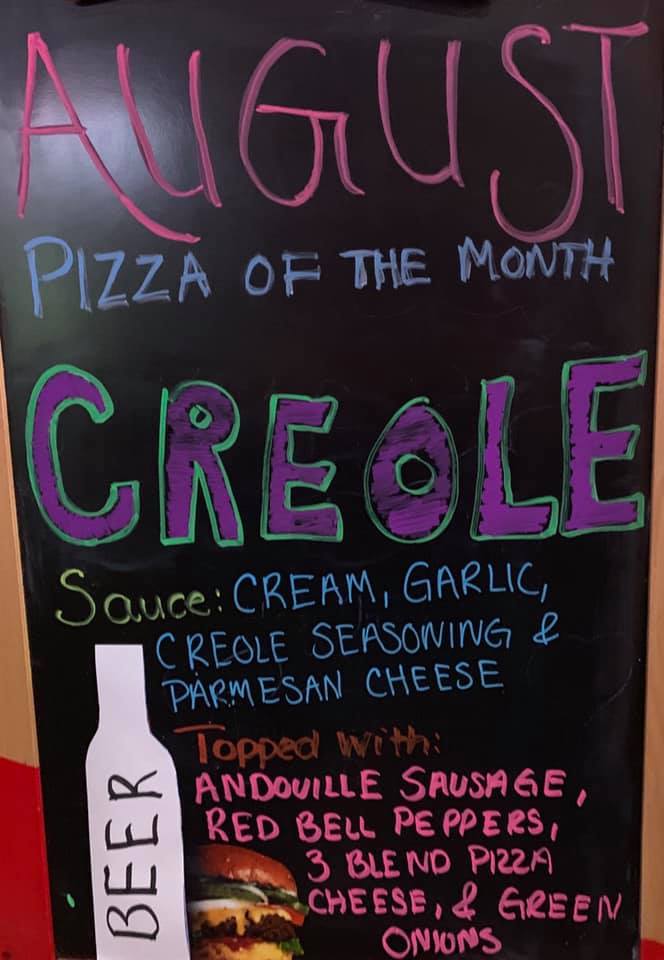 AUGUST
PIZZA OF THE MONTH
CREOLE
Sauce: CREAM, GARLIC,
CREOLE SEASONING &
PARMESAN CHEESE
Topped With:
ANDOUILLE SAUSAGE,
RED BELL PEPPERS,
3 BLEND PIZZA
CHEESE, & GREEN
ONIONS
BEER